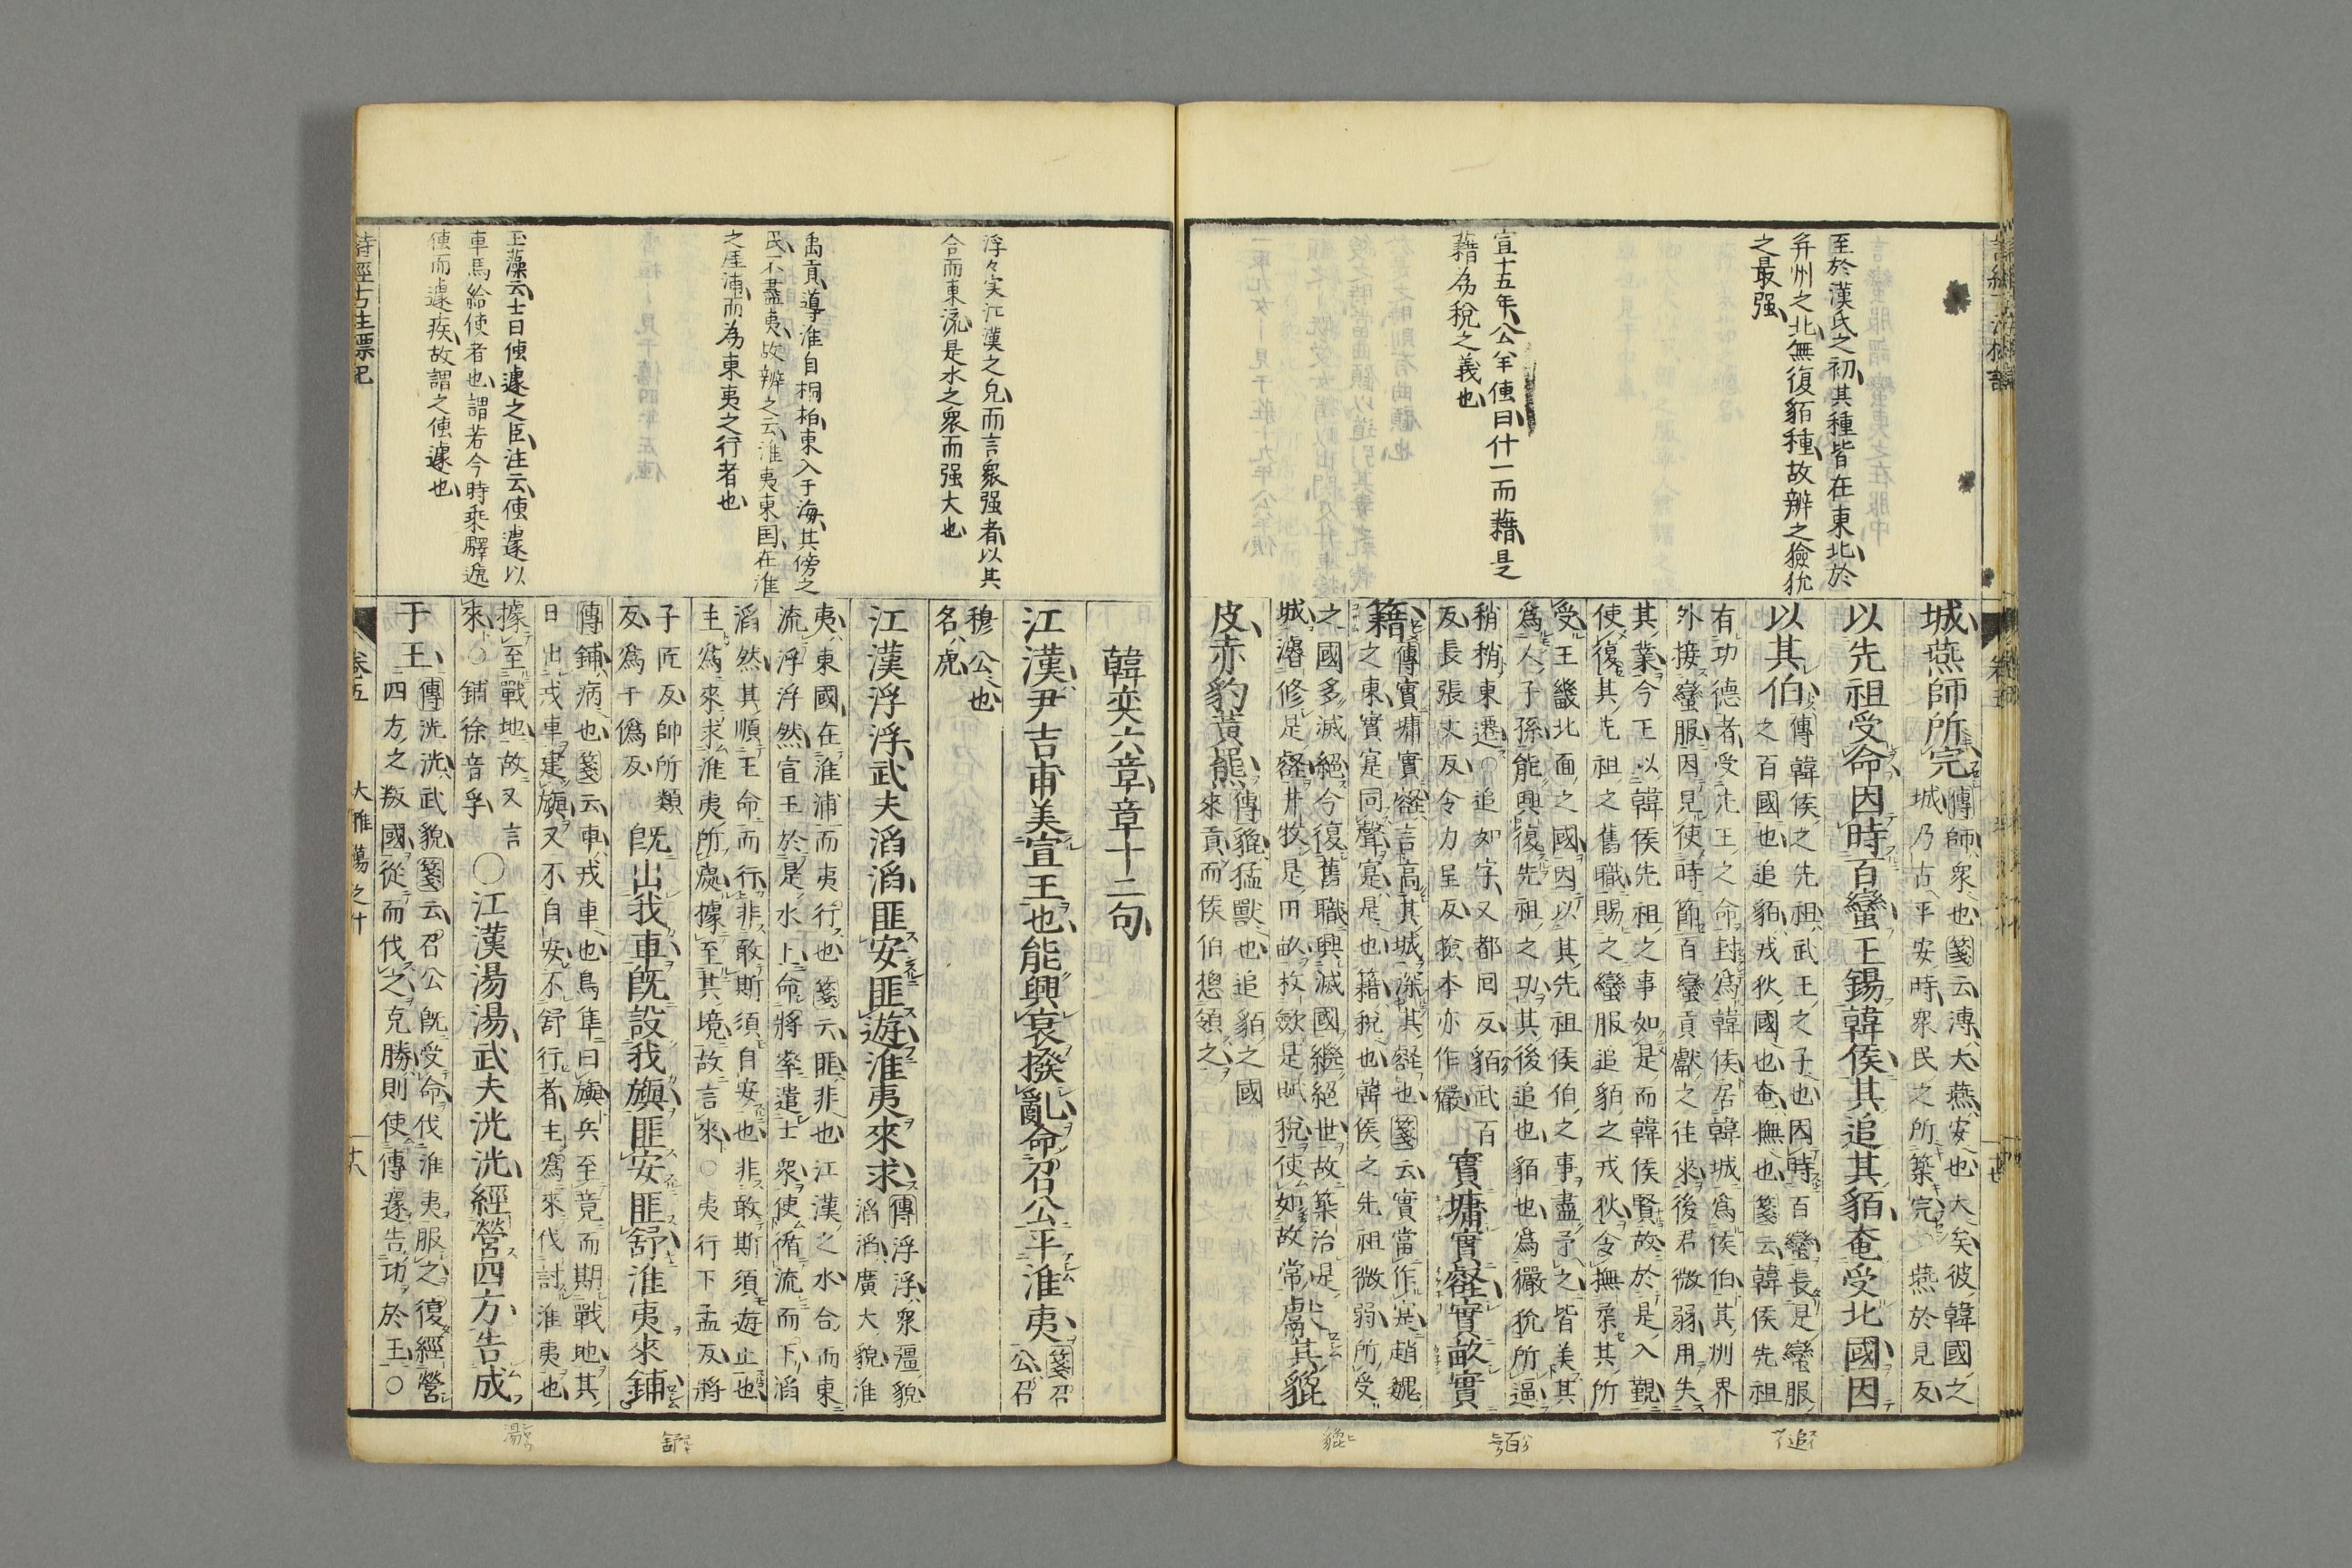 至於漢氏之初其種皆在東北於
幷州之北無復貊種故辨之獫狁
之最强
宣十五年公羊傳曰什一而藉是
藉为稅之義也
城燕師所完
傳師衆也箋云溥大燕安也大矣彼韓國之
城乃古平安時衆民之所築完 燕於見反
以先祖受命因時百蠻王錫韓侯其追其貊奄受北國因
以其伯
傳韓侯之先祖武王之子也因時百蠻長是蠻服
之百國也追貊戎狄國也奄撫也箋云韓侯先祖
有功德者受先王之命封爲韓侯居韓城爲侯伯其州界
外接蠻服因見使時節百蠻貢獻之往來後君微弱用失
其業今王以韓侯先祖之事如是而韓侯賢故於是入覲
使復其先祖之舊職賜之蠻服追貊之戎狄令撫柔其所
受王畿北面之國因以其先祖侯伯之事盡予之皆美其
爲人子孫能興復先祖之功其後追也貊也爲玁狁所逼
稍稍東遷○追如字又都囘反貊武百
反長張丈反令力呈反獫本亦作玁
實墉實壑實畝實
籍
傳實墉實壑言高其城深其壑也箋云實當作寔趙魏
之東實寔同聲寔是也籍稅也韓侯之先祖微弱所受
之國多滅絕今復舊職興滅國繼絕世故築治是
城濬修是壑井牧是田畝收斂是賦稅使如故常
獻其貔
皮赤豹黃羆
傳貔猛獸也追貊之國
來貢而侯伯摠領之
追
百
貔
浮々実江漢之皃而言衆强者以其
合而東流是水之衆而强大也
禹貢導淮自桐柏東入于海其傍之
民不盡夷故辨之云淮夷東国在淮
之厓浦而为東夷之行者也
玉藻云士曰傳遽之臣注云傳遽以
車馬給使者也謂若今時乘驛遞
傳而遽疾故謂之傳遽也
韓奕六章章十二句
江漢尹吉甫美宣王也能興衰撥亂命召公平淮夷
箋召
公召
穆公也
名虎
江漢浮浮武夫滔滔匪安匪遊淮夷來求
傳浮浮衆彊貌
滔滔廣大貌淮
夷東國在淮浦而夷行也箋云匪非也江漢之水合而東
流浮浮然宣王於是水上命將率遣士衆使循流而下滔
滔然其順王命而行非敢斯須自安也非敢斯須遊止也
主爲來求淮夷所處據至其境故言來○夷行下孟反將
子匠反帥所類
反爲于僞反
旣出我車旣設我旟匪安匪舒淮夷來鋪
傳鋪病也箋云車戎車也鳥隼曰旟兵至竟而期戰地其
日出戎車建旟又不自安不舒行者主爲來伐討淮夷也
據至戰地故又言
來○鋪徐音孚
○江漢湯湯武夫洸洸經營四方告成
于王
傳洸洸武貌箋云召公旣受命伐淮夷服之復經營
四方之叛國從而伐之克勝則使傳遽告功於王○
舒
湯
詩經古注標記
卷五
大雅蕩之什
十八